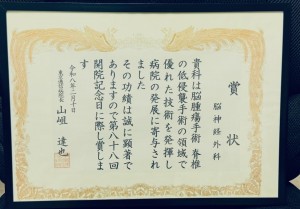 賞状
脳神経外科
貴科は脳腫瘍手術 脊椎
の低侵襲手術の領域で
優れた技術を発揮し
病院の発展に寄与され
ました
その功績は誠に顕著で
ありますので第八十八回
開院記念日に際し賞しま
す
令和八年二月十日
東京逓信病院長
山岨 達也